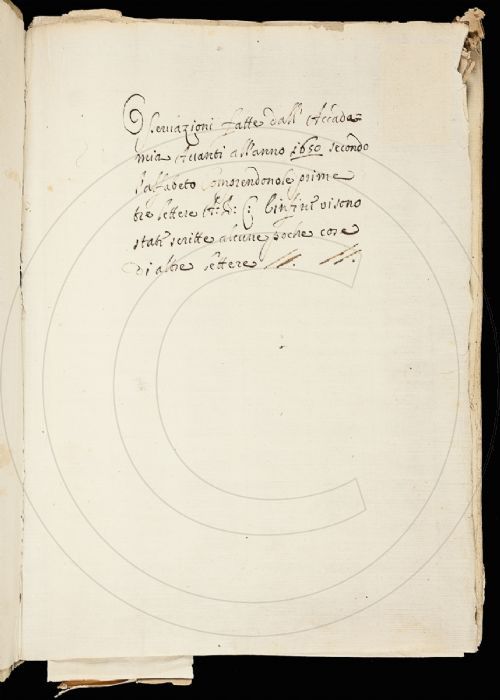 Oseruazioni fatte dall' Accade=
mia Auanti all'anno 1650 secondo
l'alfabeto Comprendono le prime
tre lettere A: B: C: Et in fine ui sono
stati scritte alcune poche cose
di altre lettere //. //.